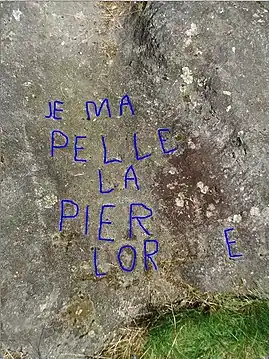 JE MA
PELLE
LA
PIER
LOR E